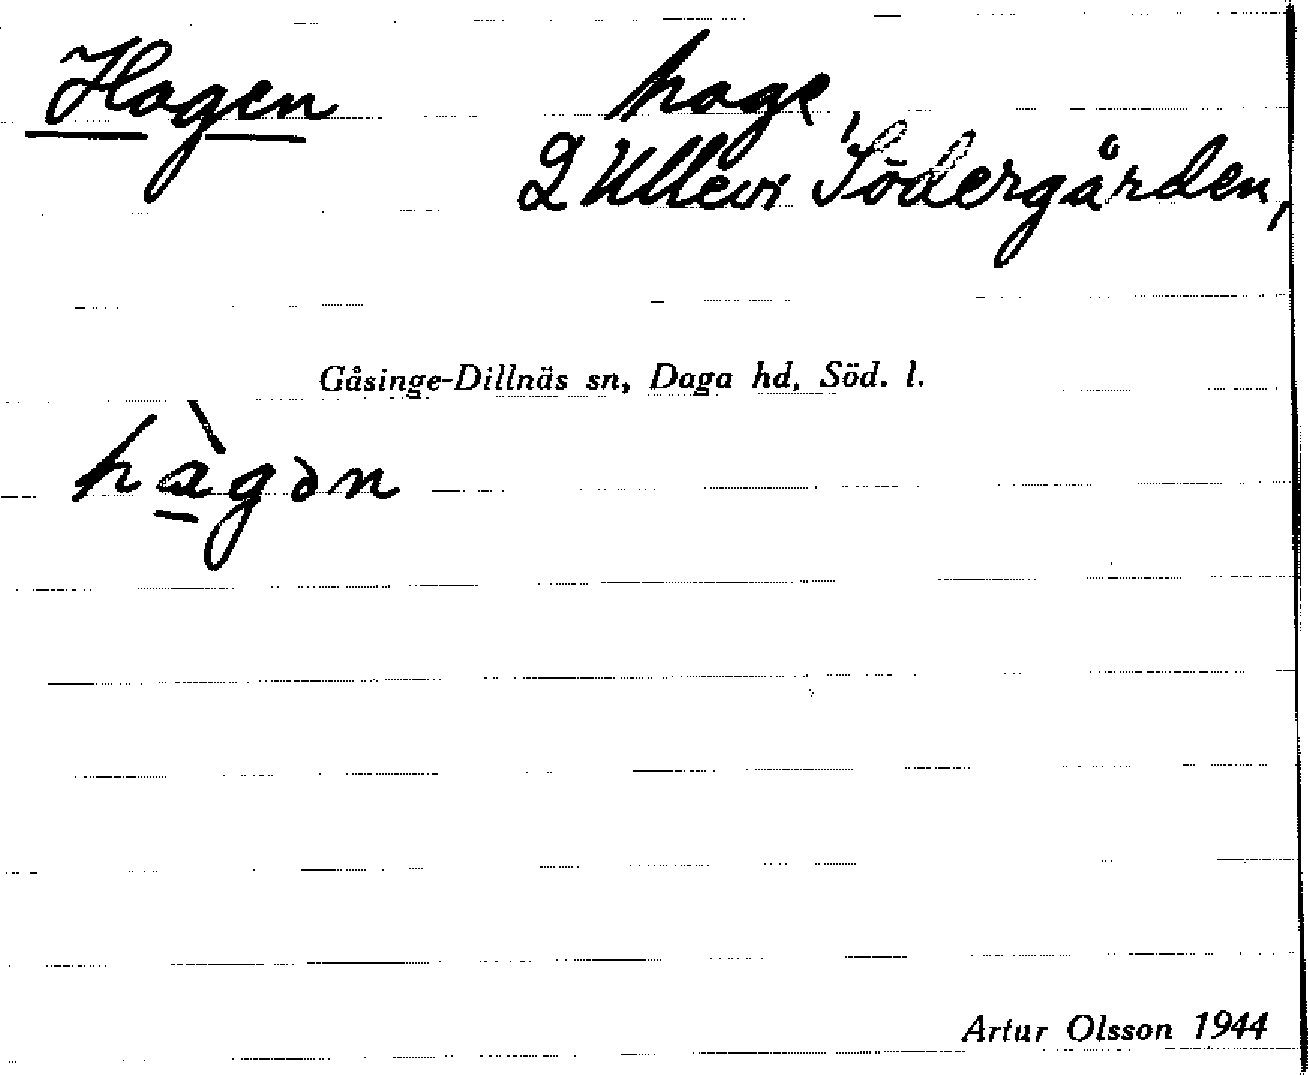 Hagen hage,
2 Ullevi Södergården,
Gåsinge-Dillnäs sn, Daga hd, Söd. l.
hàgən
Artur Olsson 1944